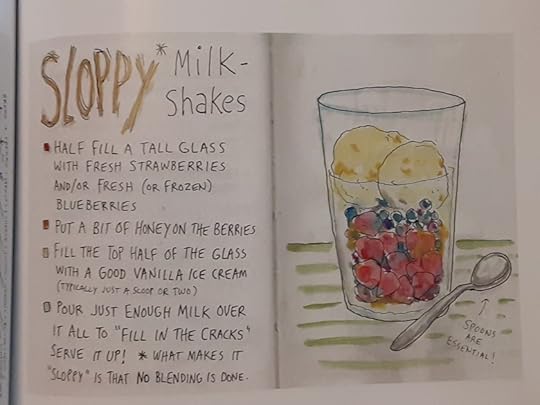 SLOPPY* Milk-
Shakes
HALF FILL A TALL GLASS
WITH FRESH STRAWBERRIES
AND/OR FRESH (OR FROZEN)
BLUEBERRIES
PUT A BIT OF HONEY ON THE BERRIES
FILL THE TOP HALF OF THE GLASS
WITH A GOOD VANILLA ICE CREAM
(TYPICALLY JUST A SCOOP OR TWO)
POUR JUST ENOUGH MILK OVER
IT ALL TO "FILL IN THE CRACKS"
SERVE IT UP! * WHAT MAKES IT
"SLOPPY" IS THAT NO BLENDING IS DONE.
SPOONS
ARE
ESSENTIAL!